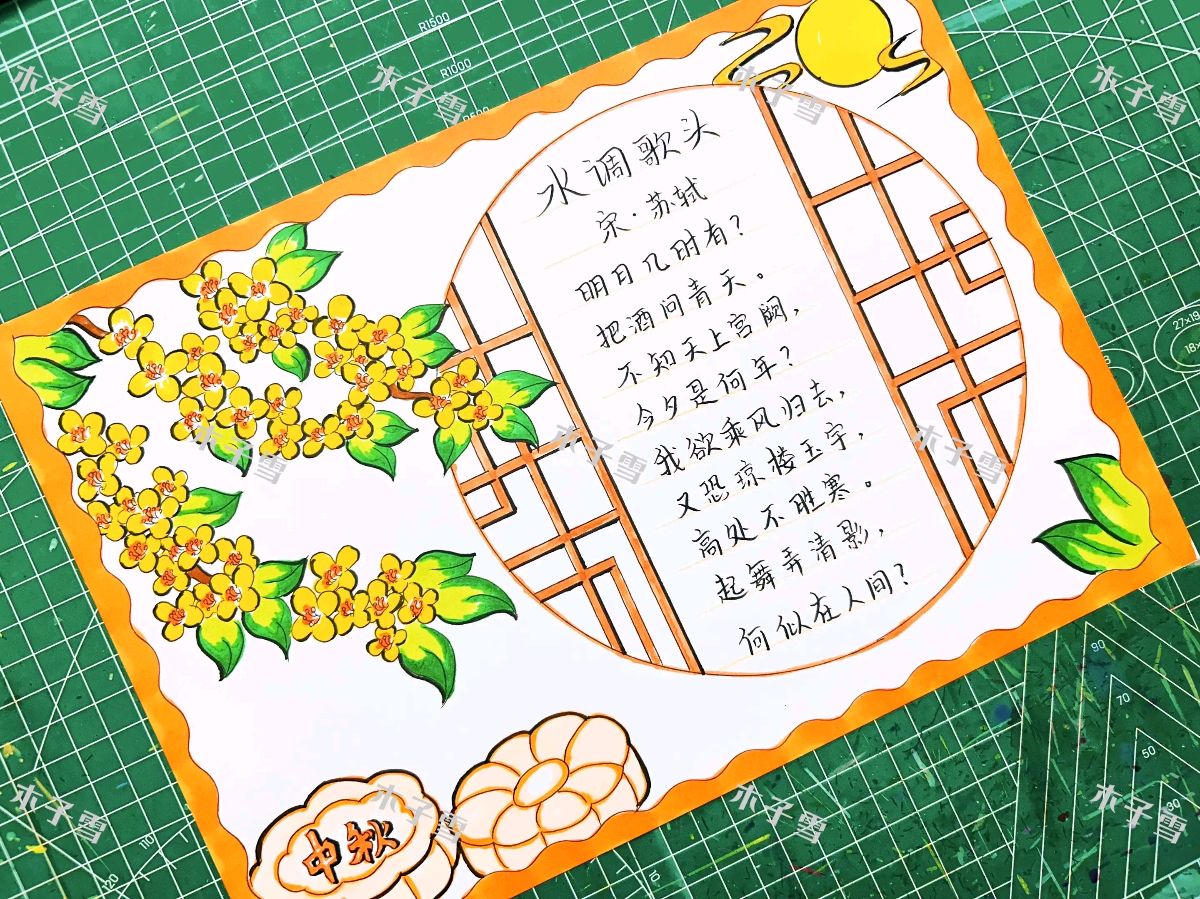 水调歌头
宋·苏轼
明日几时有?
把酒问青天。
不知天上宫阙,
今夕是何年?
我欲乘风归去,
又恐琼楼玉宇,
高处不胜寒。
起舞弄清影,
何似在人间?
中秋
木子雪
木子雪
木子雪
木子雪
木子雪
木子雪
木子雪
木子雪
木子雪
木子雪
木子雪
R1500
R1000
R500
90
70
50
30
110
120